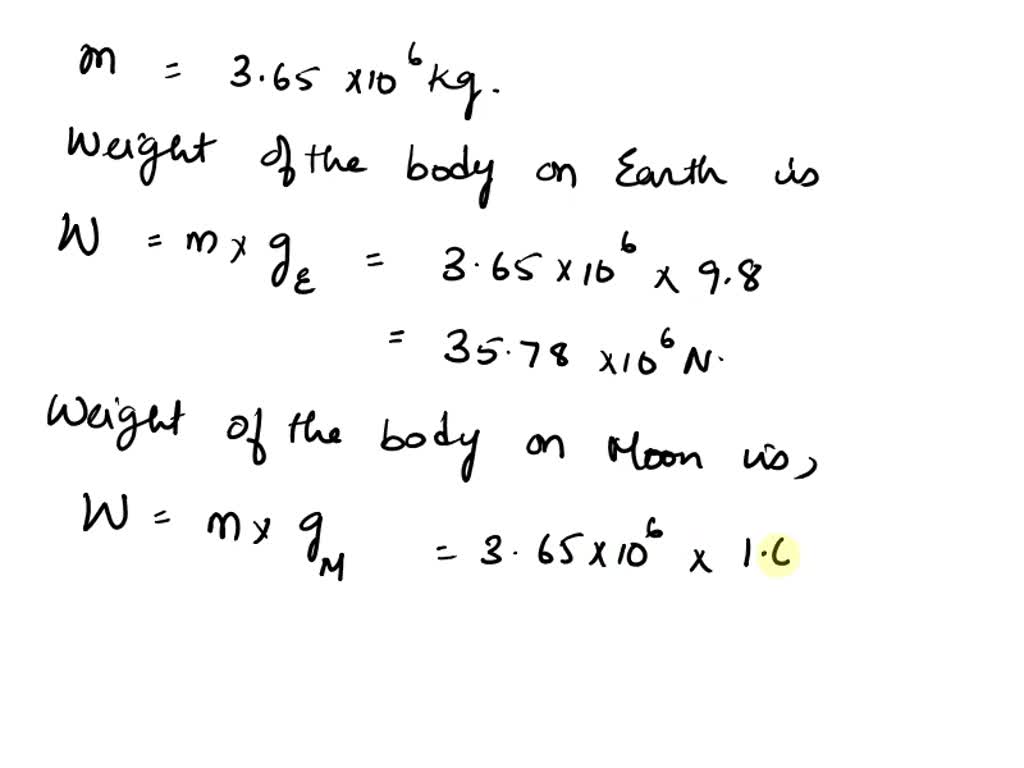 m = 3.65 ×10⁶ kg.
Weight of the body on Earth is
W = m × g_E = 3.65 × 10⁶ × 9.8
= 35.78 ×10⁶ N.
Weight of the body on Moon is,
W = m × g_M = 3.65 × 10⁶ ×